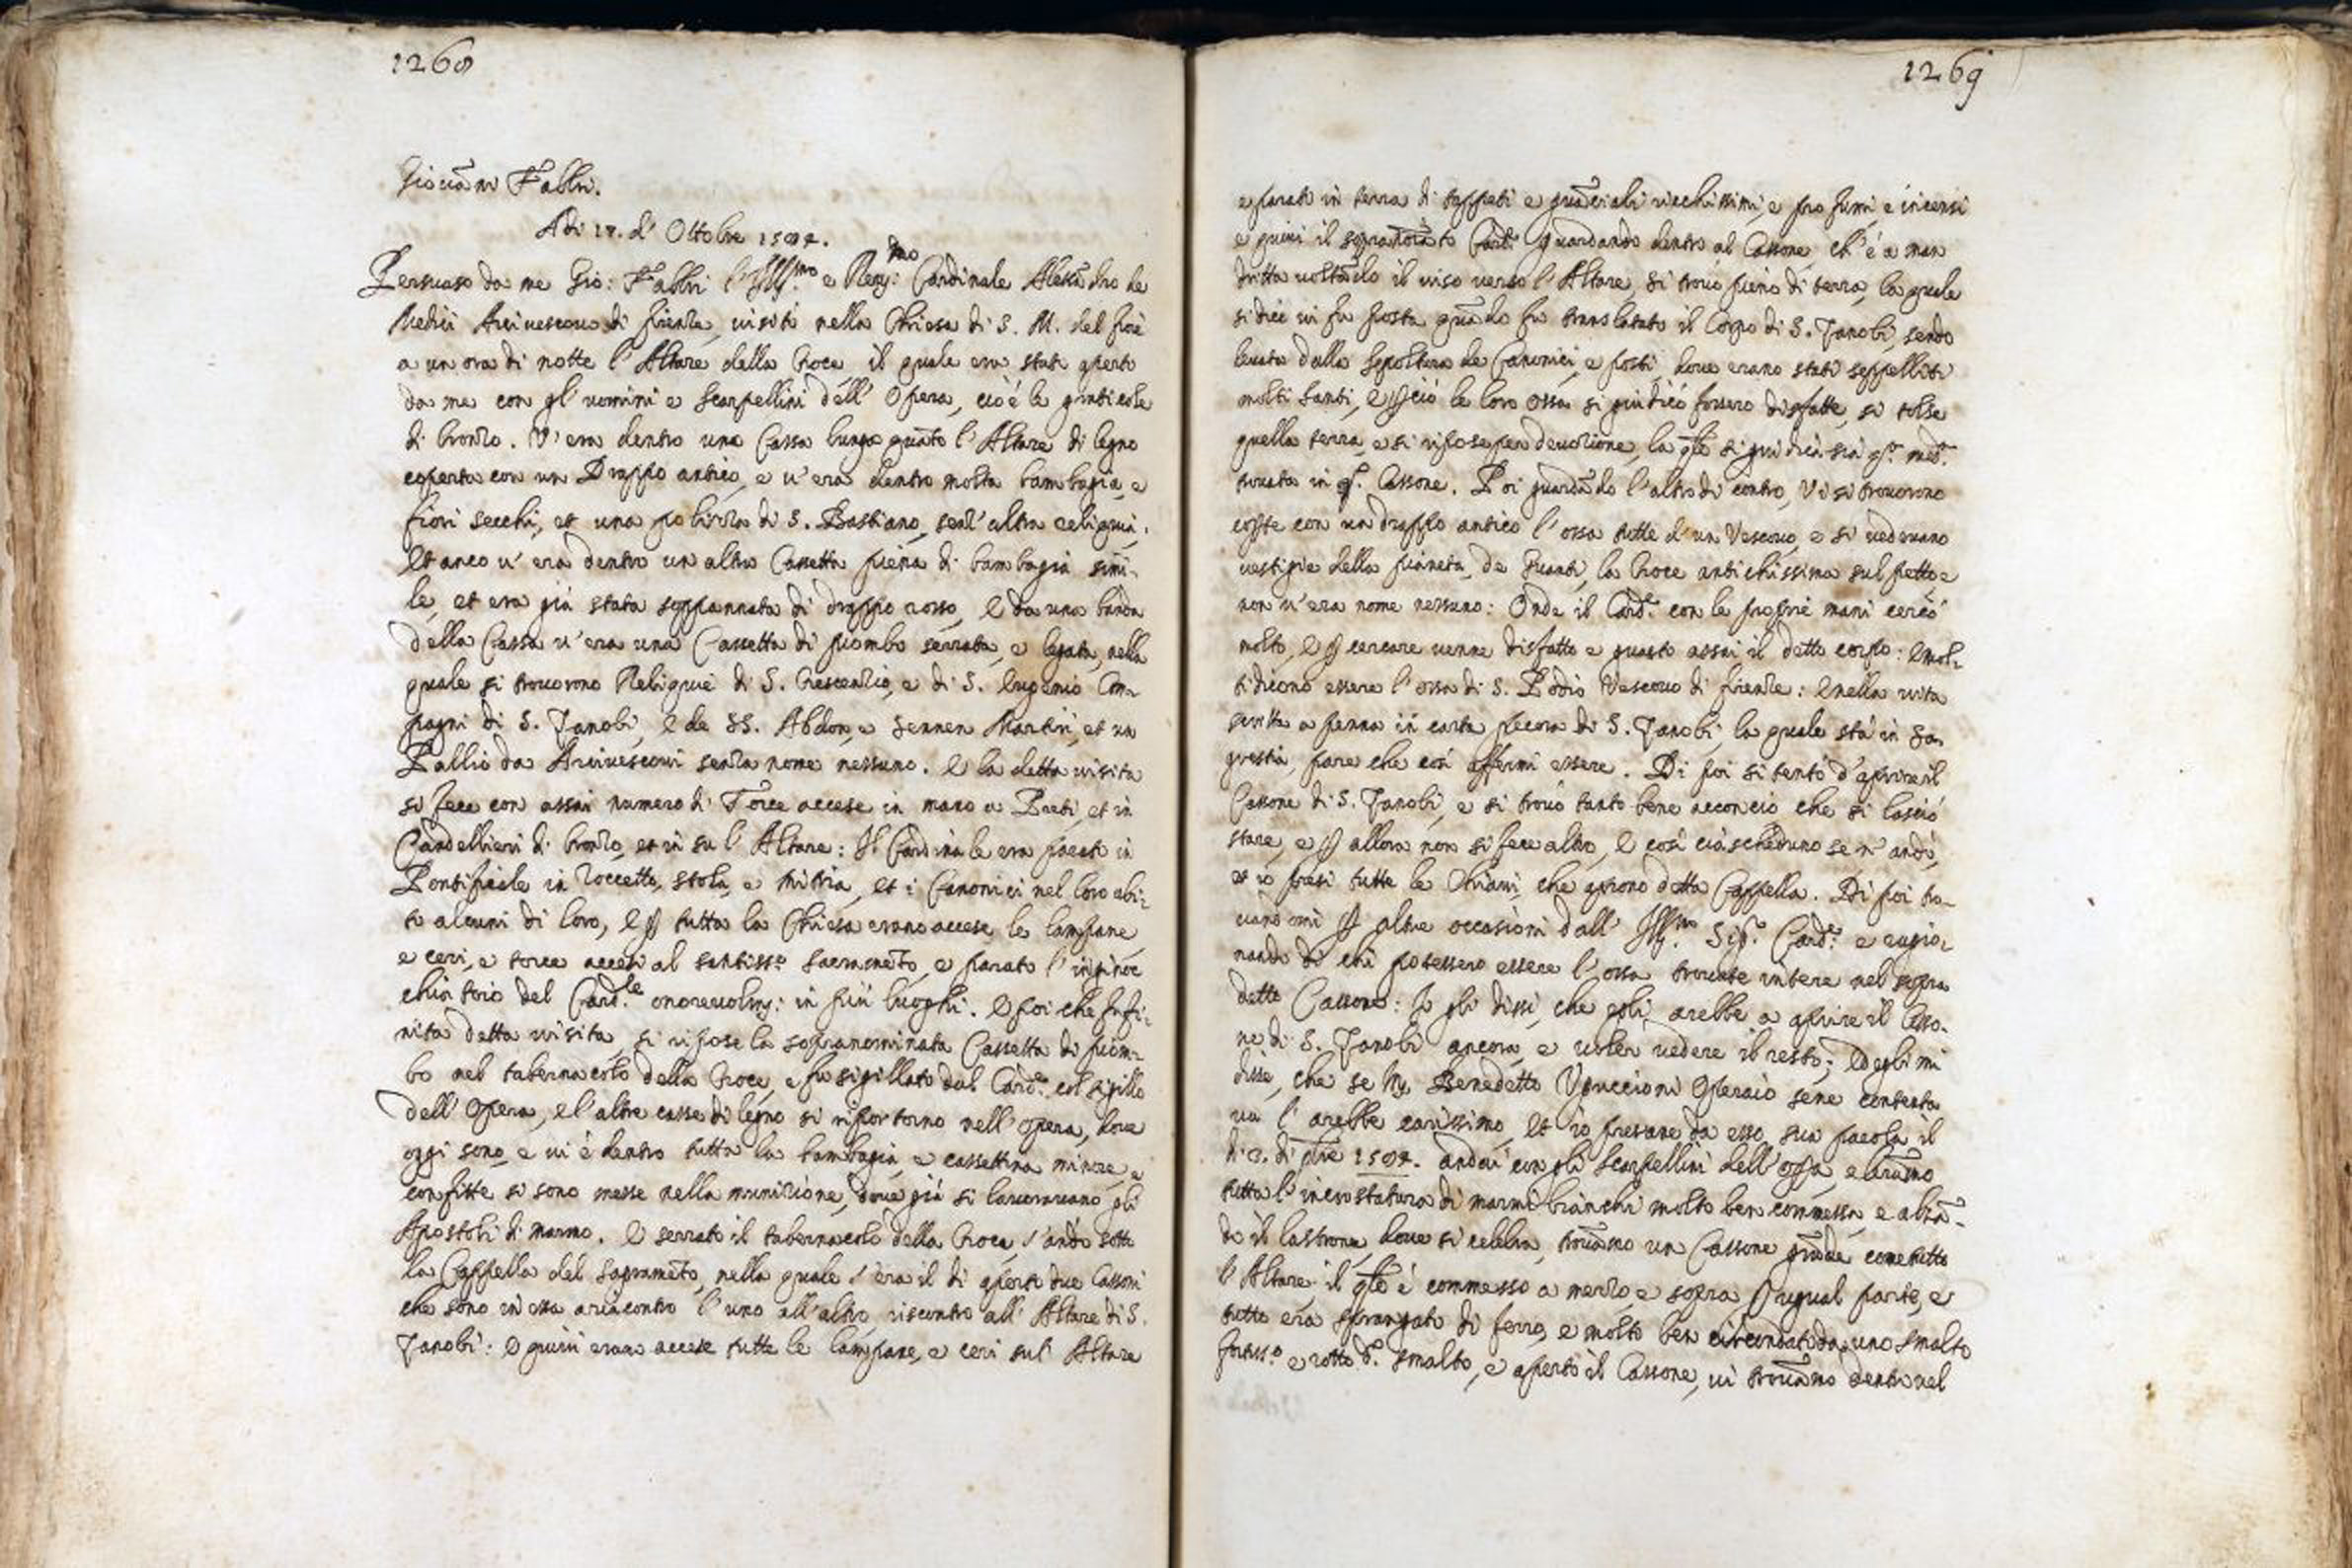 1268
Giovãni Fabbri.
Adi 17. d'Ottobre 1584.
Persuaso da me Gio: Fabbri l'Ill.mo e Rev.mo Cardinale Alessãdro de
Medici Arcivescovo di Firenze, visitò nella Chiesa di S. M. del fiore
a un ora di notte l'Altare della Croce il quale era stato aperto
da me con gl'uomini e Scarpellini dell'Opera, cioè le graticole
di bronzo. V'era dentro una Cassa lunga quãto l'Altare di legno
coperta con un Drappo antico, e v'era dentro molta bambagia, e
fiori secchi, et una polizza di S. Bastiano, senz'altra reliquia.
Et anco v'era dentro un altra Cassetta piena di bambagia simi-
le, et era già stata soppannata di drappo rosso, e da una banda
della Cassa v'era una Cassetta di piombo serrata, e legata, nella
quale si trovorono Reliquie di S. Crescenzio, e di S. Eugenio Com-
pagni di S. Zanobi, e de SS. Abdon, e Sennen Martiri, et un
Pallio da Arcivescovi senza nome nessuno. E la detta visita
si fece con assai numero di Torce accese in mano a Preti, et in
Candellieri di bronzo, et in su l'Altare: Il Cardinale era parato in
Pontificale in roccetto, stola, e mitria, et i Canonici nel loro abi-
to alcuni di loro, e p tutta la Chiesa erano accese le lampane
e ceri, e torce accese al santiss.o Sacramẽto, e parato l'inginoc
chiatoio del Card.le onorevolm: in più luoghi. E poi che fu fi-
nita detta visita, si ripose la sopranominata Cassetta di piom-
bo nel tabernacolo della Croce, e fu sigillato dal Card.e col sigillo
dell'Opera, e l'altre casse di legno si riportorno nell'opera, dove
oggi sono, e vi è dentro tutta la bambagia, e cassettina minore, e
confitte si sono messe nella munizione, dove già si lavoravano gli
Apostoli di marmo. E serrato il tabernacolo della Croce, s'andò sotto
la Cappella del Sagramẽto, nella quale s'era il dì aperto due Cassoni
che sono in essa a rincontro l'uno all'altro, riscontro all'Altare di S.
Zanobi: E quivi erano accese tutte le lampane, e ceri sul Altare
1269
e parati in terra di tappeti e guãciali ricchissimi, e profumi, e incensi
e quivi il sopranoĩato Card.le guardando dentro al Cassone ch'è a man
dritta voltãdo il viso verso l'Altare, si trovò pieno di terra, la quale
si dice vi fu posta quãdo fu translatato il Corpo di S. Zanobi, sendo
levata dalla Sepoltura de Canonici, e posti, dove erano stati seppelliti
molti Santi, e p ciò le loro ossa si giudicò fossero disfatte, si tolse
quella terra, e si ripose per devozione, la qle si giudica sia q.a med.a
trovata in q.o Cassone. Poi guardãdo l'altro di contro, vi si trovorono
coperte con un drappo antico l'ossa tutte d'un Vescovo, e si vedevano
vestigie della pianeta, de Guanti, la Croce antichissima sul petto e
non v'era nome nessuno: Onde il Card.le con le proprie mani cercò
molto, e p cercare venne disfatto e guasto assai il detto corpo: e mol-
ti dicono essere l'ossa di S. Podio Vescovo di Firenze: e nella vita
scritta a penna in carta pecora di S. Zanobi, la quale stà in Sa-
grestia, pare che così affermi essere. Di poi si tentò d'aprire il
Cassone di S. Zanobi, e si trovò tanto bene acconcio che si lasciò
stare, e p allora non si fece altro, e così ciascheduno se n'andò,
et io presi tutte le Chiavi, che aprono detta Cappella. Di poi tro-
vandomi p altre occasioni dall'Ill.mo Sig.r Card.e e ragio-
nando di chi potessero essere l'ossa trovate intere nel sopra
detto Cassone: Io gli dissi, che egli arebbe a aprire il Casso-
ne di S. Zanobi ancora, e voler vedere il resto; Ed egli mi
disse, che se M. Benedetto Uguccioni Operaio sene contenta
va l'arebbe carissimo, et io presane da esso sua parola il
di 3. di 9bre 1584. andai con gli Scarpellini dell'opa, e levãmo
tutta l'incrostatura di marmi bianchi molto ben commessa, e alzã-
do il lastrone dove si celebra, trovãmo un Cassone grãde come tutto
l'Altare il qle è commesso a mezzo e sopra p ugual parte, e
tutto era sprangato di ferro, e molto ben circondato da uno smalto
fortiss.o e rotto d.o smalto, e aperto il Cassone, vi trovãmo dentro nel